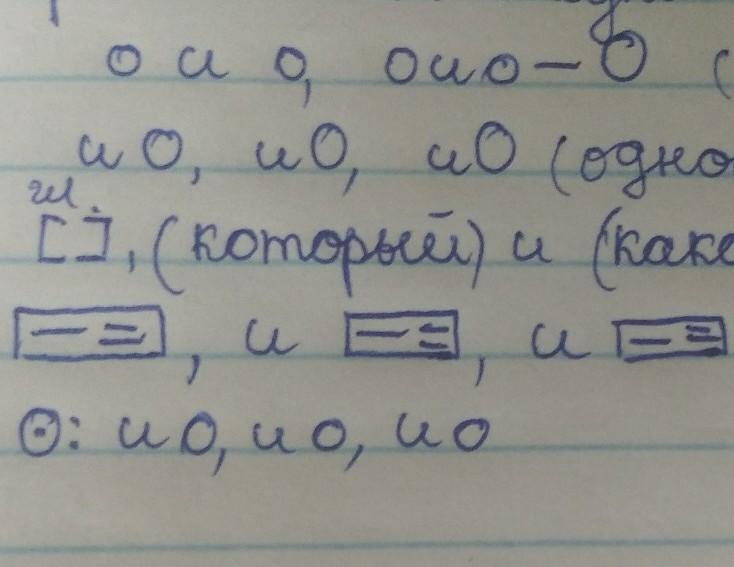 о и о, оио – О (
и О, и О, и О (одно
гл.
[ ], (который) и (како
[– =], и [– =], и [– =]
⊙: и о, и о, и о